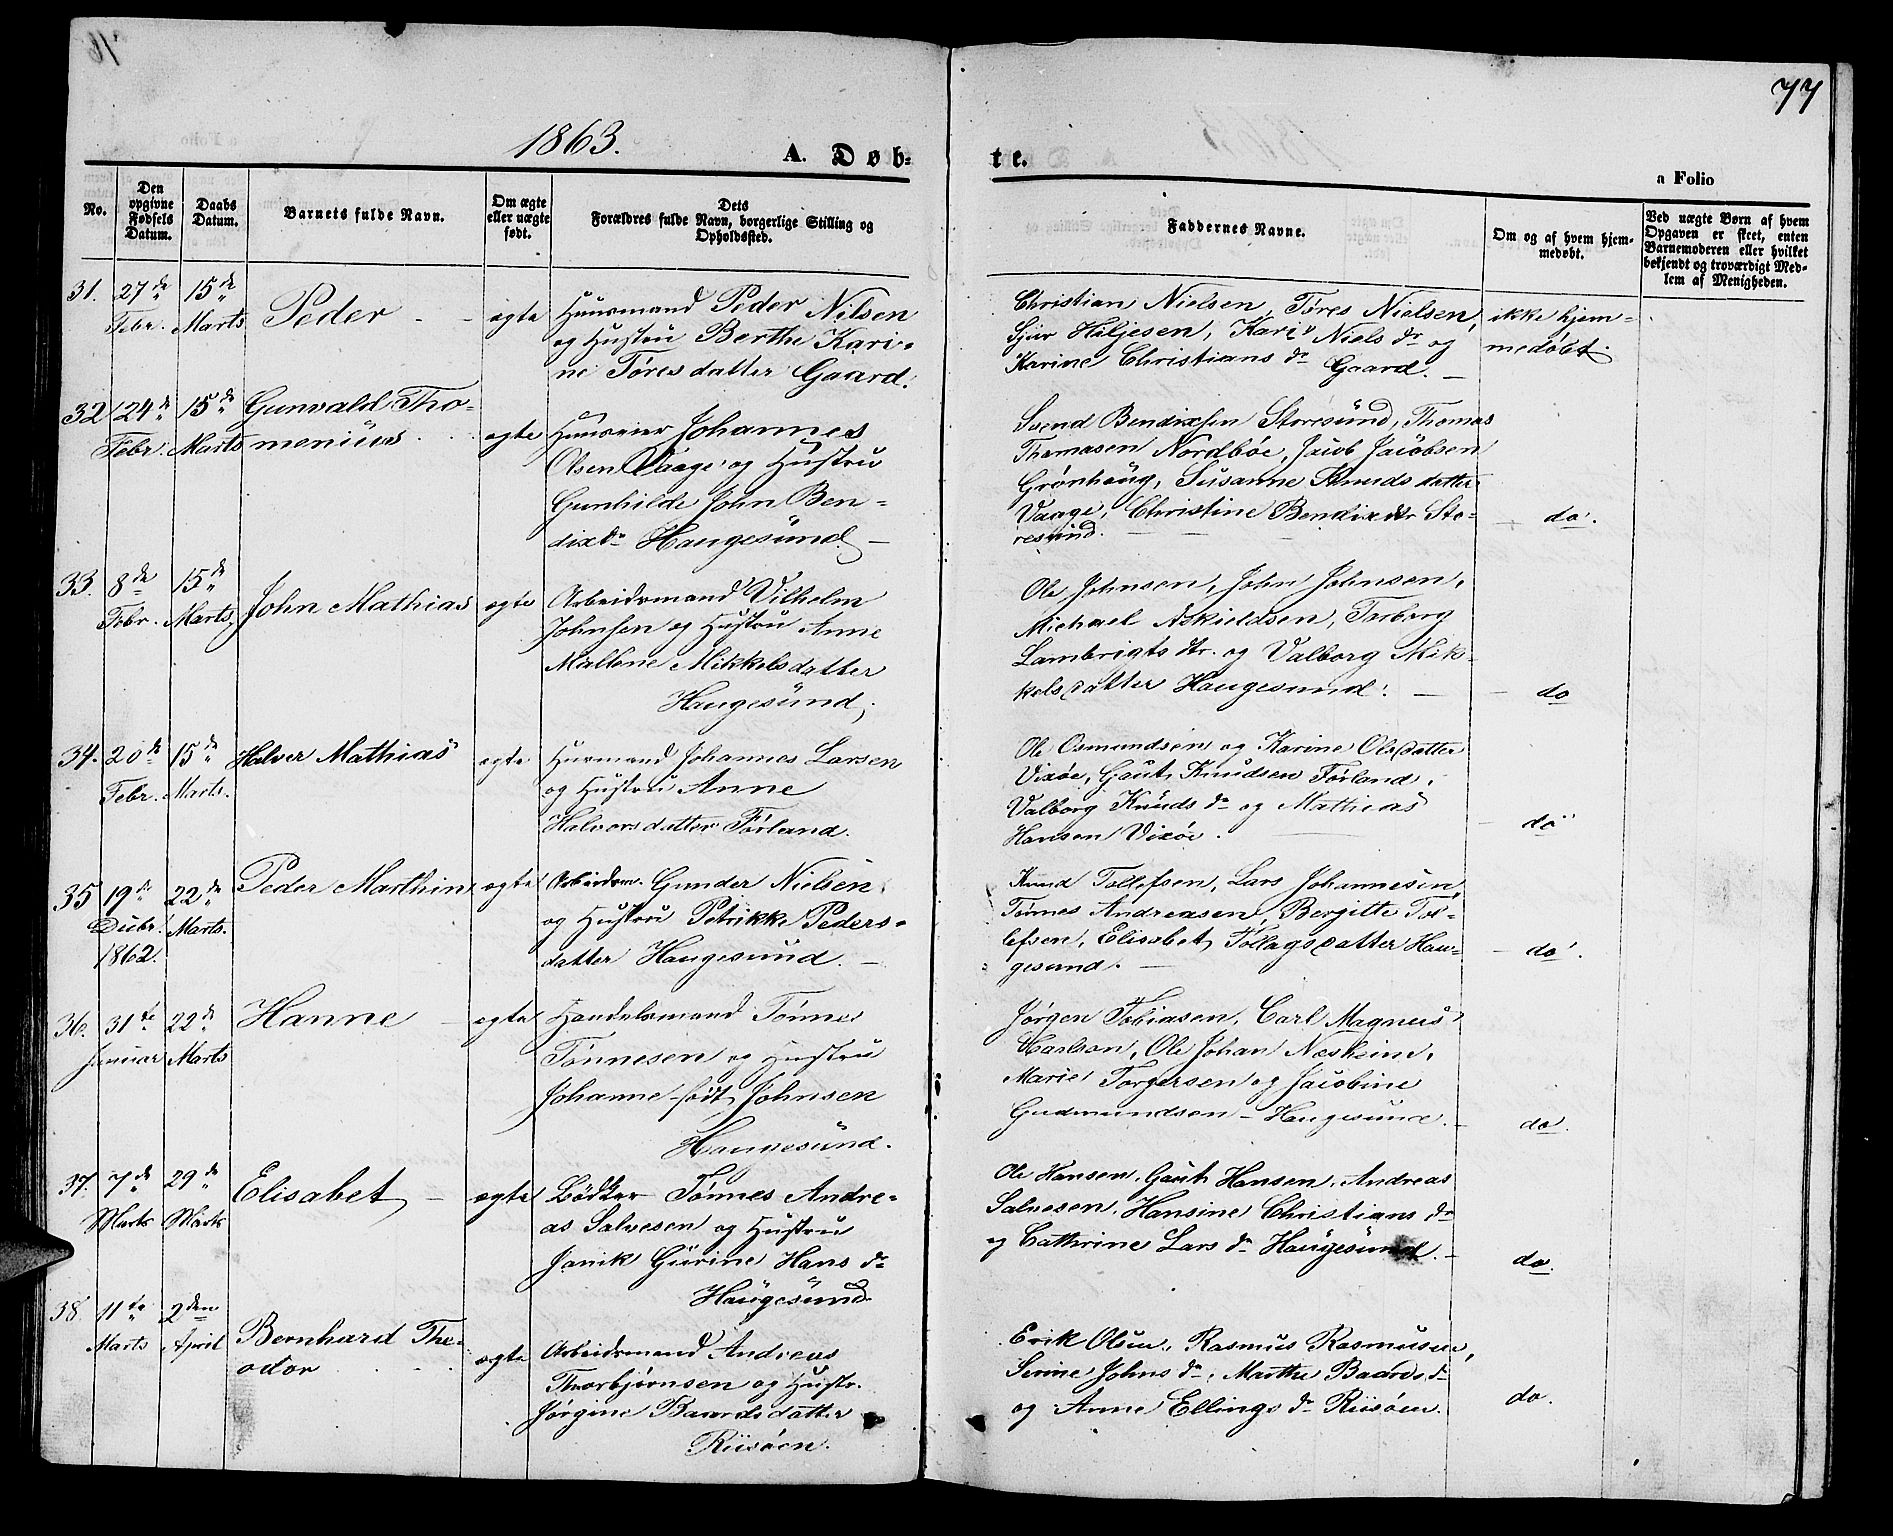 77
1863.
A. Døb-
te.
a Folio
No.
Den opgivne Fødsels Datum.
Daabs Datum.
Barnets fulde Navn.
Om ægte eller uægte født.
Dets Forældres fulde Navn, borgerlige Stilling og Opholdssted.
Faddernes Navne.
Om og af hvem hjem-
medøbt.
Ved uægte Børn af hvem
Opgaven er skeet, enten
Barnemoderen eller hvilket
bekjendt og troværdigt Med-
lem af Menigheden.
31. 27de Febr. 15de Marts Peder ægte
Huusmand Peder Nilsen
og Hustru Berthe Kari-
ne Töresdatter Gaard.
Christian Nielsen, Töres Nielsen,
Hiljesen, Kari Niels dr og
Karine Christians dr Gaard.
ikke hjem-
medöbt.
32 24de Febr. 15de Marts Gunvald Tho-
menius ægte
Huuseier Johannes
Olsen Vaage og Hustru
Gunhilde John Ben-
dixdr Haugesund.
Svend Bendixsen Storesund, Thomas
Thomasen Nordböe, Jacob Jacobsen
Grönhaug, Susanne Knudsdatter
Vaage, Christine Bendixdtr Sto-
resund.
do.
33. 8de Febr. 15de Marts John Mathias ægte
Arbeidsmand Vilhelm
Johnsen og Hustru Anne
Mallene Mikkelsdatter
Haugesund.
Ole Johnsen, John Johnsen,
Michael Askieldsen, Torborg
Lambrigts dtr. og Valborg Mik-
kelsdatter Haugesund.
do
34. 20de Febr. 15de Marts. Halvor Mathias ægte
Husmand Johannes Larsen
og Hustru Anne
Halvorsdatter Förland.
Ole Osmundsen og Karine Olsdatter
Vixöe, Gaut Knudsen Förland,
Valborg Knuds dr og Mathias
Hansen Vixöe.
do
35 19de Decbr. 1862. 22de Marts. Peder Marthin ægte
Arbeidsm. Gunder Nielsen
og Hustru Petrikke Peders-
datter Haugesund.
Knud Tollefsen, Lars Johannesen,
Tönnes Andreasen, Bergitte Tol-
lefsen, Elisabet Tollagsdatter Hau-
gesund.
do.
36. 31te Januar 22de Marts Hanne ægte
Handelsmand Tönnes
Tönnesen og Hustru
Johanne födt Johnsen
Haugesund.
Jörgen Tobiasen, Carl Magnus
Karlson, Ole Johan Nesheim,
Marie Torgersen og Jacobine
Gudmundsen - Haugesund.
do.
37. 7de Marts 29de Marts Elisabet ægte
Bödker Tönnes Andre-
as Salvesen og Hustru
Janik Gurine Hans dr
Haugesund
Ole Hansen, Gaut Hansen, Andreas
Salvesen, Hansine Christians dr
og Cathrine Lars dr Haugesund.
do.
38. 11te Marts 2den April Bernhard The-
odor ægte
Arbeidsmand Andreas
Thorbjørnsen og Hustr.
Jörgine Baardsdatter
Riisöen.
Erik Olsen, Rasmus Rasmusen,
Serine Johns dr, Marthe Baards dr
og Anne Ellings dr Riisöen.
do.